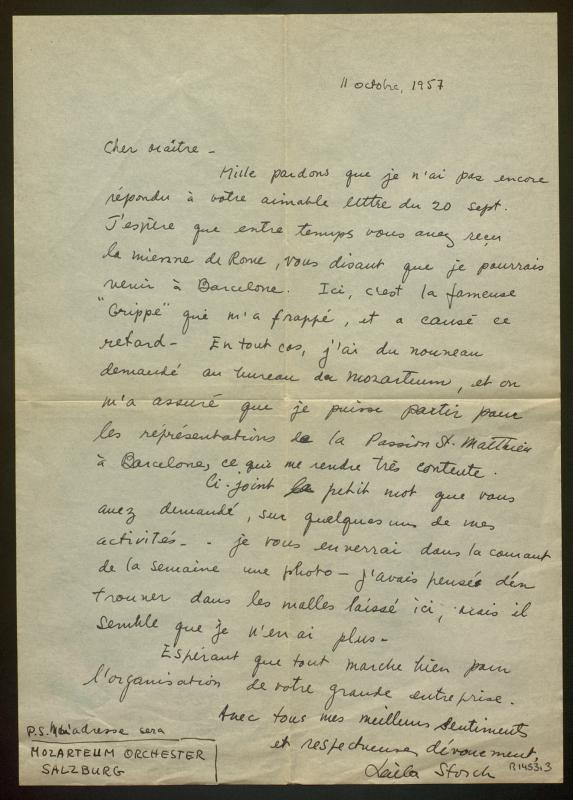 11 octobre, 1957
Cher Maître -
Mille pardons que je n'ai pas encore
répondu à votre aimable lettre du 20 sept.
J'espère que entre temps vous avez reçu
la mienne de Rome, vous disant que je pourrais
venir à Barcelone. Ici, c'est la fameuse
"Grippe" qui m'a frappé, et a causé ce
retard - En tout cas, j'ai du nouveau
demandé au bureau du Mozarteum, et on
m'a assuré que je puisse partir pour
les représentations de la Passion St. Matthieu
à Barcelone, ce qui me rendre très contente.
Ci-joint le petit mot que vous
avez demandé, sur quelques uns de mes
activités - - je vous enverrai dans la courant
de la semaine une photo - j'avais pensée d'en
trouver dans les malles laissé ici, mais il
semble que je n'en ai plus -
Espérant que tout marche bien pour
l'organisation de votre grande entreprise.
Avec tous mes meilleurs sentiments
et respectueuse dévouement,
Laila Storch
R14533
P.S. Mon adresse sera
MOZARTEUM ORCHESTER
SALZBURG